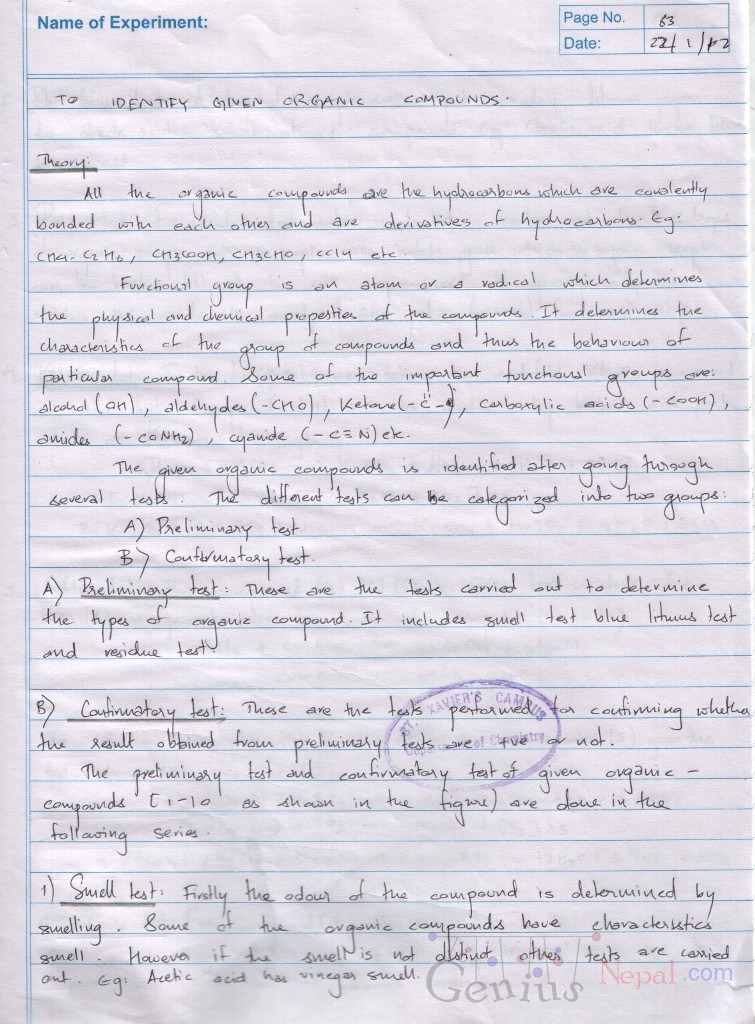 Name of Experiment:
Page No. 63
Date: 22/1/
TO IDENTIFY GIVEN ORGANIC COMPOUNDS.
Theory:
All the organic compounds are the hydrocarbons which are covalently
bonded with each other and are derivatives of hydrocarbons. Eg:
CH4, C2H6, CH3COOH, CH3CHO, CCl4 etc.
Functional group is an atom or a radical which determines
the physical and chemical properties of the compounds. It determines the
characteristics of the group of compounds and thus the behaviour of
particular compound. Some of the important functional groups are:
alcohol (OH), aldehydes (-CHO), Ketone (-C-), carboxylic acids (-COOH),
amides (-CONH2), cyanide (-C≡N) etc.
The given organic compounds is identified after going through
several tests. The different tests can be categorized into two groups:
A) Preliminary test
B) Confirmatory test.
A) Preliminary test: These are the tests carried out to determine
the types of organic compound. It includes smell test blue litmus test
and residue test.
B) Confirmatory test: These are the tests performed for confirming whether
the result obtained from preliminary tests are +ve or not.
ST. XAVIER'S CAMPUS
Department of Chemistry
The preliminary test and confirmatory test of given organic -
compounds [1-10 as shown in the figure) are done in the
following series.
1) Smell test: Firstly the odour of the compound is determined by
smelling. Some of the organic compounds have characteristics
smell. However if the smell is not distinct other tests are carried
out. Eg: Acetic acid has vinegar smell.
Genius Nepal.com